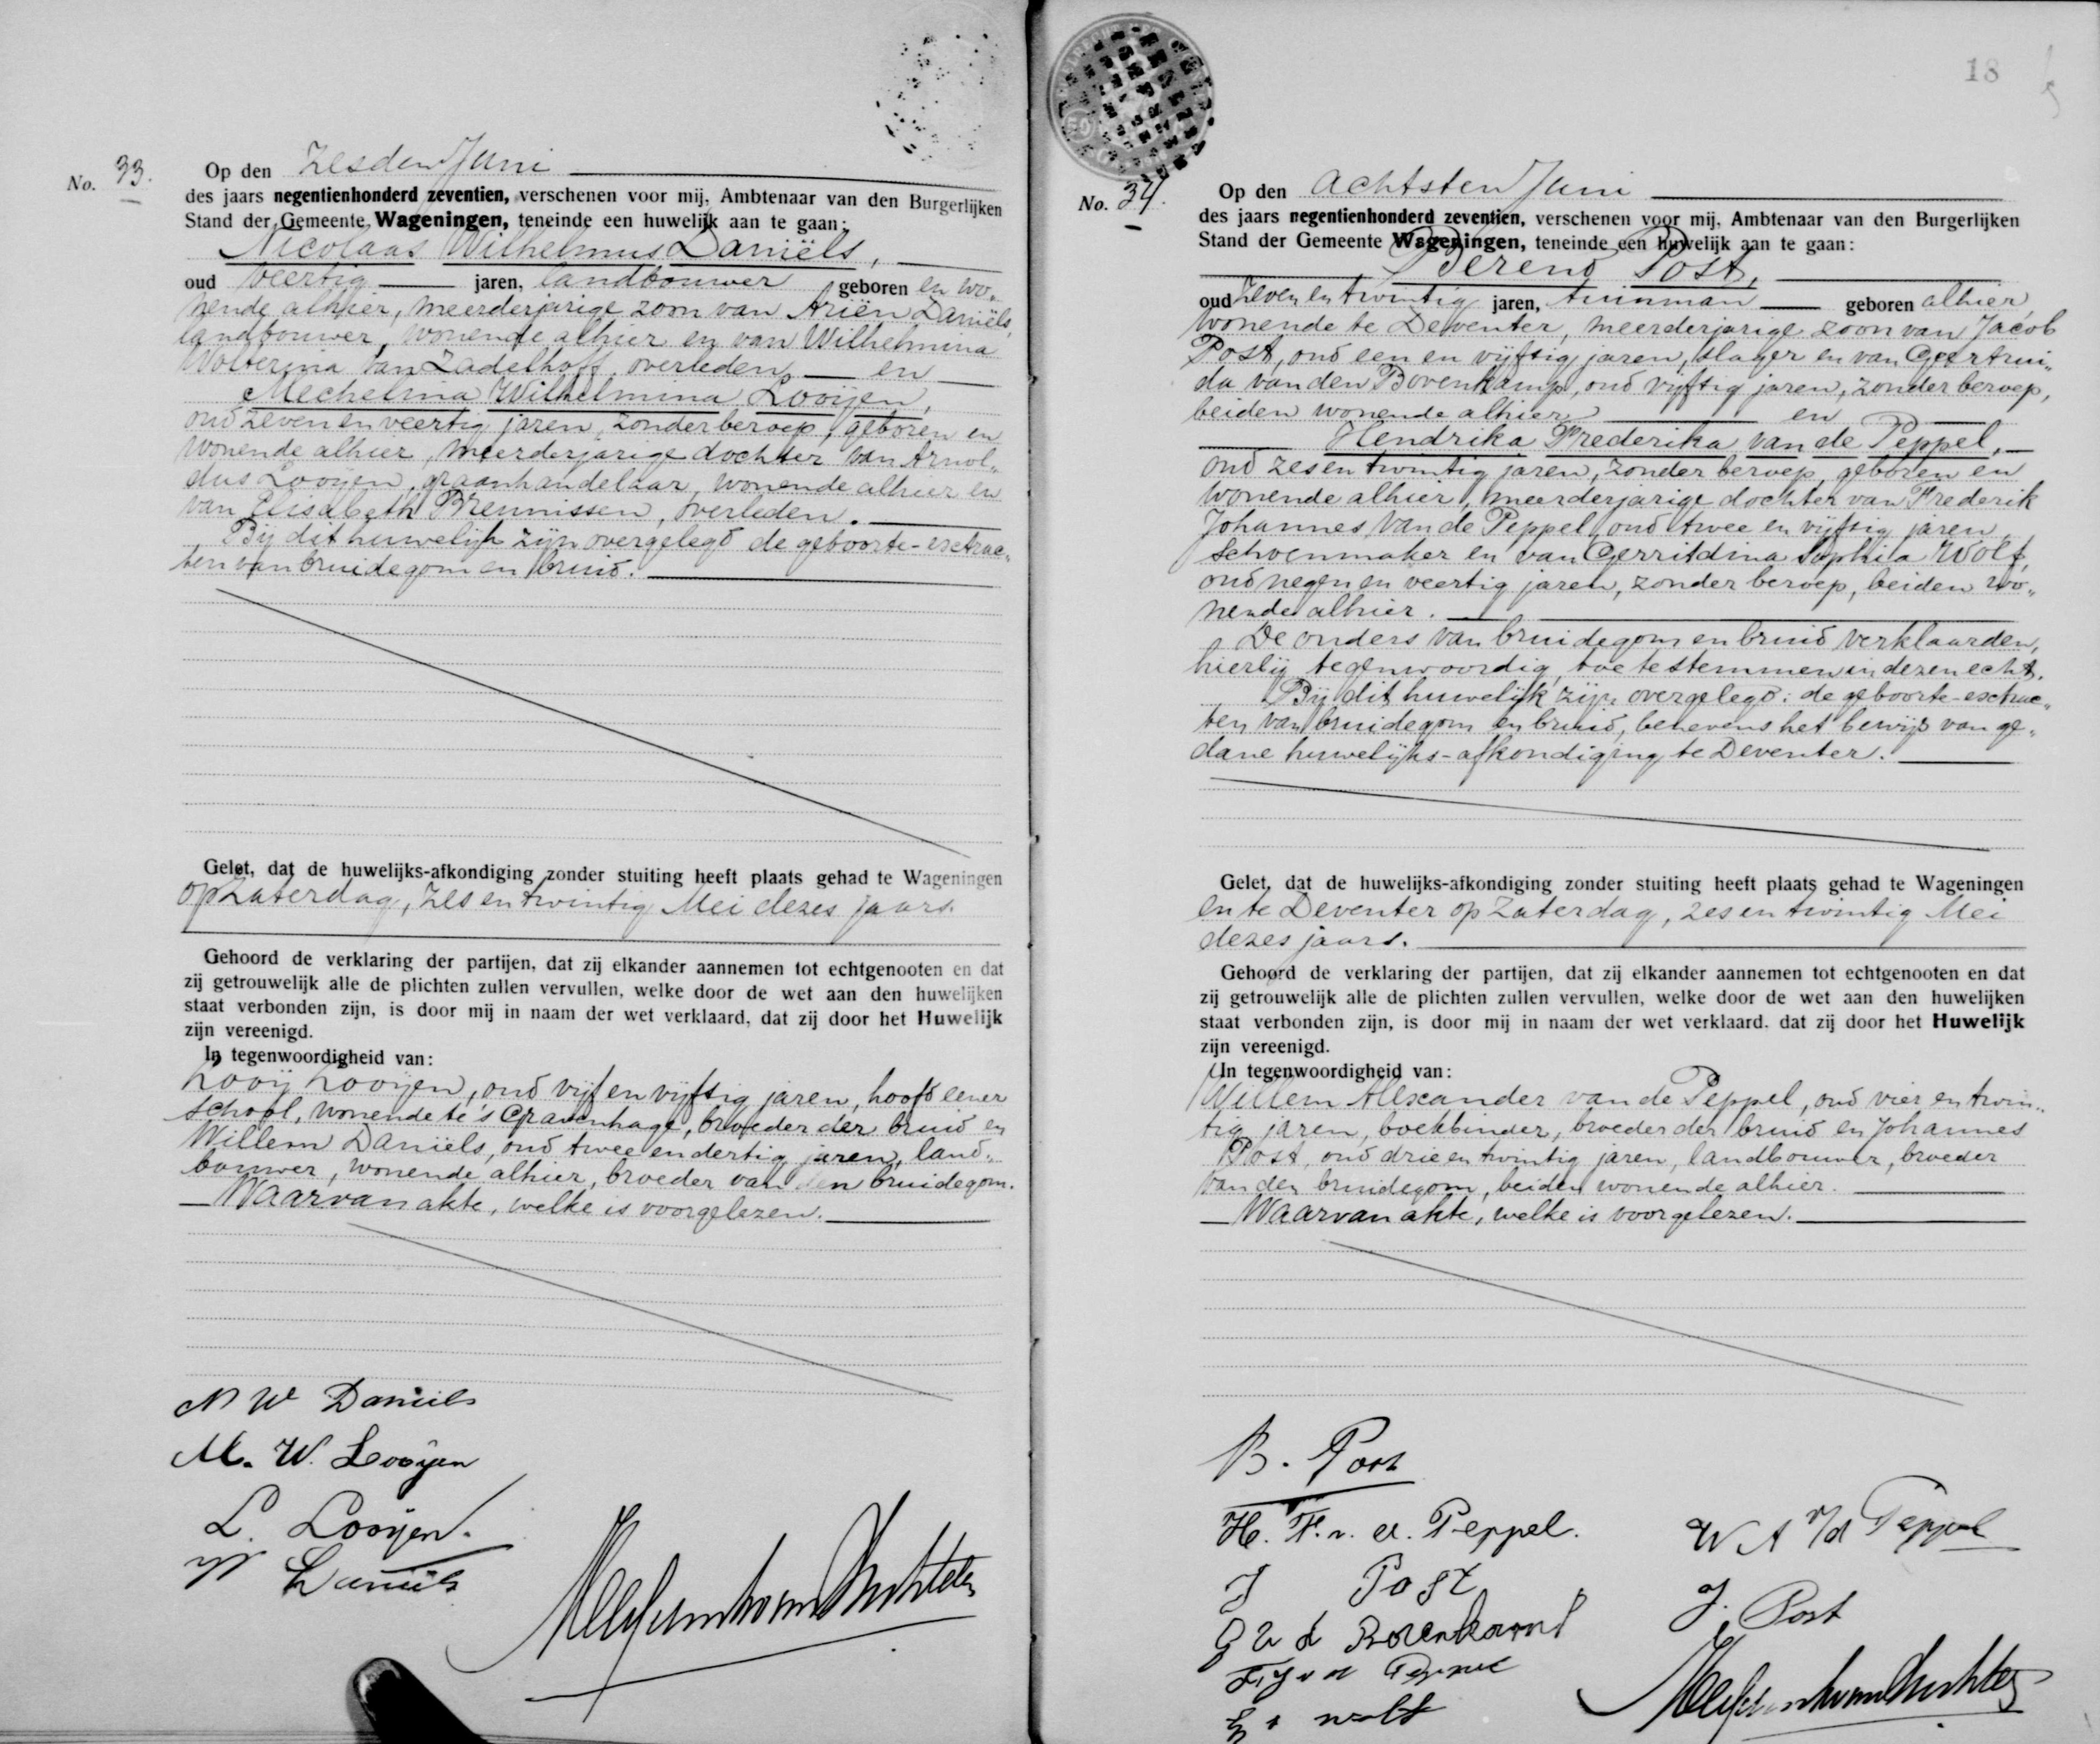 No. 33.
Op den Zesden Juni
des jaars negentienhonderd zeventien, verschenen voor mij, Ambtenaar van den Burgerlijken
Stand der Gemeente Wageningen, teneinde een huwelijk aan te gaan:
Nicolaas Wilhelmus Daniëls,
oud veertig jaren, landbouwer geboren en wo„
nende alhier, meerderjarige zoon van Ariën Daniëls,
landbouwer, wonende alhier en van Wilhelmina
Wolterina van Zadelhoff, overleden, en
Mechelina Wilhelmina Looijen,
oud zeven en veertig jaren, zonder beroep, geboren en
wonende alhier, meerderjarige dochter van Arnol„
dus Looijen, graanhandelaar, wonende alhier en
van Elisabeth Brennissen, overleden.
Bij dit huwelijk zijn overgelegd de geboorte-extrac„
ten van bruidegom en bruid.
Gelet, dat de huwelijks-afkondiging zonder stuiting heeft plaats gehad te Wageningen
op Zaterdag, zes en twintig Mei dezes jaars.
Gehoord de verklaring der partijen, dat zij elkander aannemen tot echtgenooten en dat
zij getrouwelijk alle de plichten zullen vervullen, welke door de wet aan den huwelijken
staat verbonden zijn, is door mij in naam der wet verklaard, dat zij door het Huwelijk
zijn vereenigd.
In tegenwoordigheid van:
Looij Looijen, oud vijf en vijftig jaren, hoofd eener
school, wonende te 's Gravenhage, broeder der bruid en
Willem Daniëls, oud twee en dertig jaren, land„
bouwer, wonende alhier, broeder van den bruidegom.
Waarvan akte, welke is voorgelezen.
N W Daniëls
M. W. Looijen
L. Looijen.
W Daniëls
18
No. 34.
Op den achtsten Juni
des jaars negentienhonderd zeventien, verschenen voor mij, Ambtenaar van den Burgerlijken
Stand der Gemeente Wageningen, teneinde een huwelijk aan te gaan:
Berend Post,
oud zeven en twintig jaren, tuinman geboren alhier,
wonende te Deventer, meerderjarige zoon van Jacob
Post, oud een en vijftig jaren, slager en van Geertrui„
da van den Bovenkamp, oud vijftig jaren, zonder beroep,
beiden wonende alhier, en
Hendrika Frederika van de Peppel,
oud zes en twintig jaren, zonder beroep, geboren en
wonende alhier, meerderjarige dochter van Frederik
Johannes van de Peppel, oud twee en vijftig jaren
schoenmaker en van Gerritdina Sophia Wolf,
oud negen en veertig jaren, zonder beroep, beiden wo„
nende alhier.
De ouders van bruidegom en bruid verklaarden,
hierbij tegenwoordig, toe te stemmen in dezen echt.
Bij dit huwelijk zijn overgelegd: de geboorte-extrac„
ten van bruidegom en bruid, benevens het bewijs van ge„
dane huwelijks-afkondiging te Deventer.
Gelet, dat de huwelijks-afkondiging zonder stuiting heeft plaats gehad te Wageningen
en te Deventer op Zaterdag, zes en twintig Mei
dezes jaars.
Gehoord de verklaring der partijen, dat zij elkander aannemen tot echtgenooten en dat
zij getrouwelijk alle de plichten zullen vervullen, welke door de wet aan den huwelijken
staat verbonden zijn, is door mij in naam der wet verklaard, dat zij door het Huwelijk
zijn vereenigd.
In tegenwoordigheid van:
Willem Alexander van de Peppel, oud vier en twin„
tig jaren, boekbinder, broeder der bruid en Johannes
Post, oud drie en twintig jaren, landbouwer, broeder
van den bruidegom, beiden wonende alhier.
Waarvan akte, welke is voorgelezen.
B. Post
H. F. v. d. Peppel.
W A v/d Peppel
J Post
J. Post
G v d Bovenkamp
F J v d Peppel
G S Wolf